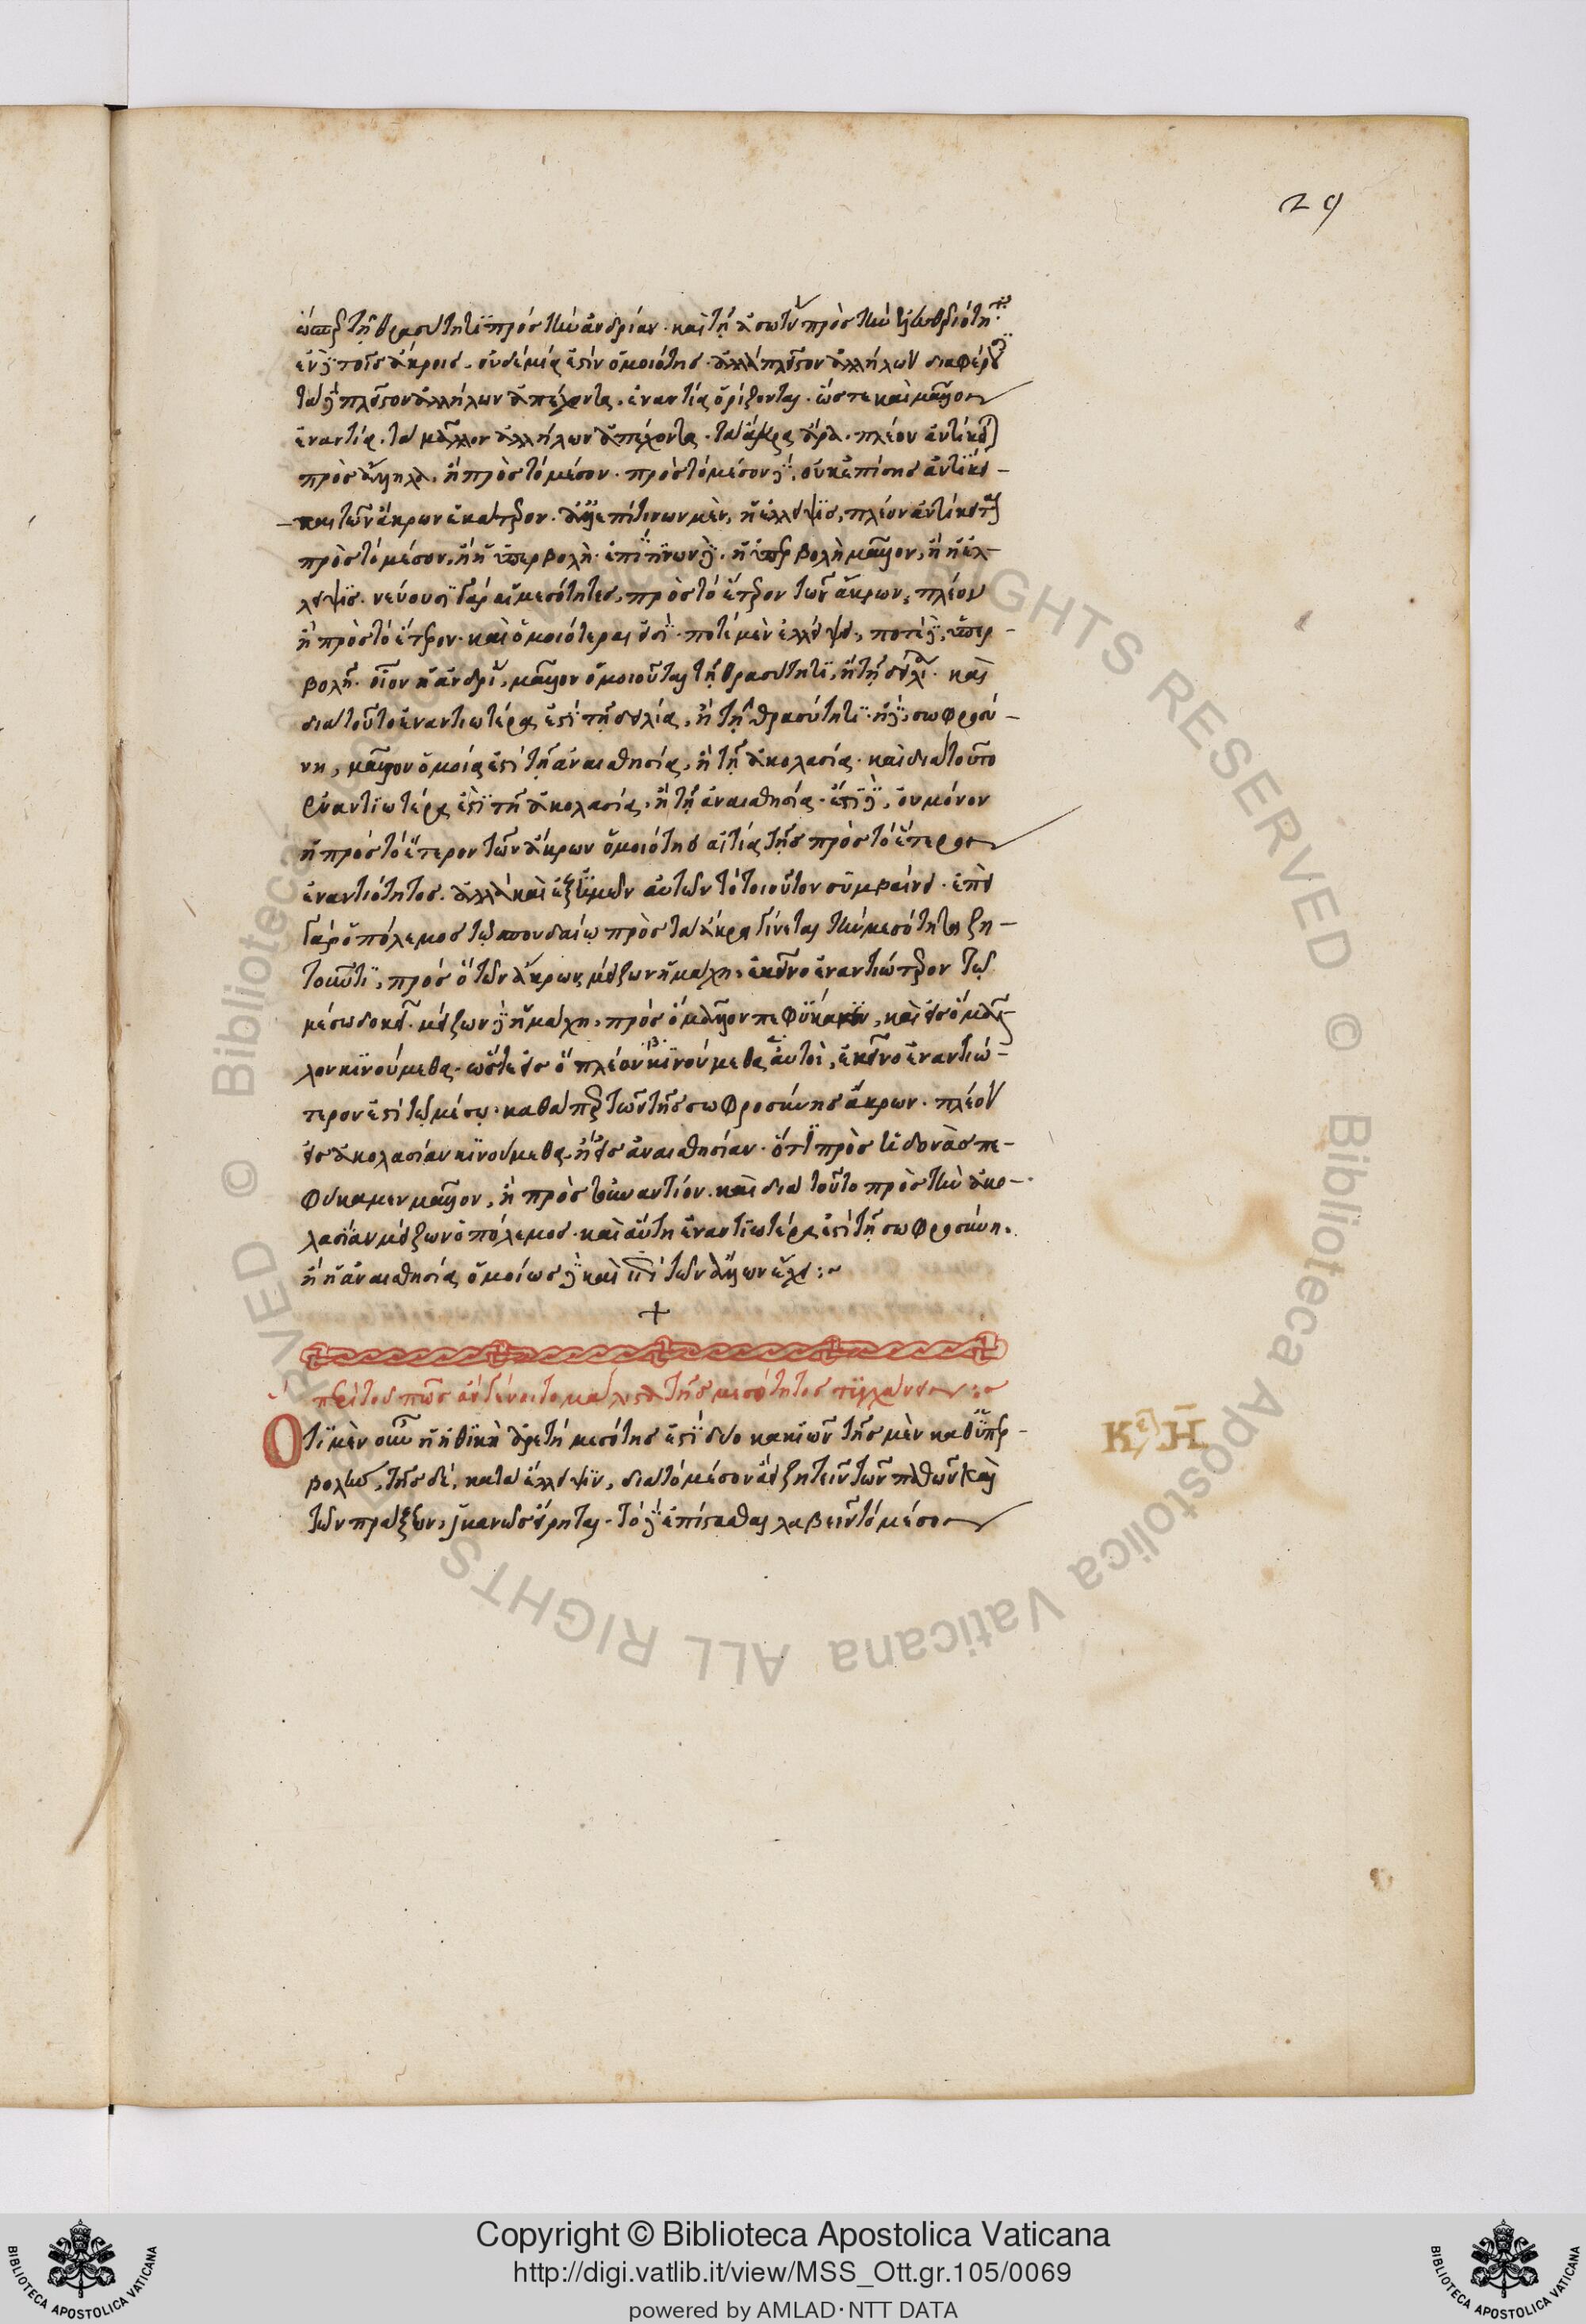 29
ὥσπερ τῇ θρασύτητι πρὸς τὴν ἀνδρίαν· καὶ τῇ ἀσωτίᾳ πρὸς τὴν ἐλευθεριότητα·
ἐν δὲ τοῖς ἄκροις, οὐδεμία ἐστὶν ὁμοιότης· ἀλλὰ πλεῖστον ἀλλήλων διαφέρει·
τὰ δὲ πλεῖστον ἀλλήλων ἀπέχοντα, ἐναντία ὁρίζονται· ὥστε καὶ μᾶλλον
ἐναντία, τὰ μᾶλλον ἀλλήλων ἀπέχοντα· τὰ ἄκρα ἄρα, πλέον ἀντίκειται
πρὸς ἄλληλα, ἢ πρὸς τὸ μέσον· πρὸς τὸ μέσον δὲ, οὐκ ἐπίσης ἀντίκει-
-ται τῶν ἄκρων ἑκάτερον· ἀλλ' ἐπί τινων μὲν, ἡ ἔλλειψις, πλέον ἀντίκειται
πρὸς τὸ μέσον, ἢ ἡ ὑπερβολὴ· ἐπί τινων δὲ, ἡ ὑπερβολὴ μᾶλλον, ἢ ἡ ἔλ-
λειψις· νεύουσι γὰρ αἱ μεσότητες, πρὸς τὸ ἕτερον τῶν ἄκρων, πλέον
ἢ πρὸς τὸ ἕτερον· καὶ ὁμοιότεραι εἰσὶ· ποτὲ μὲν ἐλλείψει, ποτὲ δὲ, ὑπερ-
βολῇ· οἷον ἡ ἀνδρία, μᾶλλον ὁμοιοῦται τῇ θρασύτητι, ἢ τῇ δειλίᾳ· καὶ
διὰ τοῦτο ἐναντιωτέρα ἐστὶ τῇ δειλίᾳ, ἢ τῇ θρασύτητι· ἡ δὲ, σωφροσύ-
νη, μᾶλλον ὁμοία ἐστὶ τῇ ἀναισθησίᾳ, ἢ τῇ ἀκολασίᾳ· καὶ διὰ τοῦτο
ἐναντιωτέρα ἐστὶ τῇ ἀκολασίᾳ, ἢ τῇ ἀναισθησίᾳ· ἔστι δὲ, οὐ μόνον
ἡ πρὸς τὸ ἕτερον τῶν ἄκρων ὁμοιότης αἰτία τῆς πρὸς τὸ ἕτερον
ἐναντιότητος· ἀλλὰ καὶ ἐξ ἡμῶν αὐτῶν τὸ τοιοῦτον συμβαίνει· ἐπεὶ
γὰρ ὁ πόλεμος τῷ σπουδαίῳ πρὸς τὰ ἄκρα γίνεται τὴν μεσότητα ζη-
τοῦντι, πρὸς ὃ τῶν ἄκρων μείζων ἡ μάχη, ἐκεῖνο ἐναντιώτερον τῷ
μέσῳ δοκεῖ· μείζων δὲ ἡ μάχη, πρὸς ὃ μᾶλλον πεφύκαμεν, καὶ εἰς ὃ μᾶλ-
λον κινούμεθα· ὥστε εἰς ὃ πλέον κινούμεθα αὐτοὶ, ἐκεῖνο ἐναντιώ-
τερον ἐστὶ τῷ μέσῳ· καθάπερ τῶν τῆς σωφροσύνης ἄκρων· πλέον
εἰς ἀκολασίαν κινούμεθα, ἢ εἰς ἀναισθησίαν· ὅτι πρὸς ἡδονὰς πε-
φύκαμεν μᾶλλον, ἢ πρὸς τοὐναντίον· καὶ διὰ τοῦτο πρὸς τὴν ἀκο-
λασίαν μείζων ὁ πόλεμος· καὶ αὕτη ἐναντιωτέρα ἐστὶ τῇ σωφροσύνῃ,
ἢ ἡ ἀναισθησία ὁμοίως δὲ καὶ ἐπὶ τῶν ἄλλων ἔχει:~
+
περὶ τοῦ πῶς ἂν γένοιτο μάλιστα τῆς μεσότητος τυγχάνειν:~
Ὅτι μὲν οὖν ἡ ἠθικὴ ἀρετὴ μεσότης ἐστὶ δύο κακιῶν τῆς μὲν καθ' ὑπερ-
βολὴν, τῆς δὲ, κατὰ ἔλλειψιν, διὰ τὸ μέσον ἀεὶ ζητεῖν τῶν παθῶν καὶ
τῶν πράξεων, ἱκανῶς εἴρηται· τὸ δὲ ἐπίστασθαι λαβεῖν τὸ μέσον
Κε Η
Copyright © Biblioteca Apostolica Vaticana
http://digi.vatlib.it/view/MSS_Ott.gr.105/0069
powered by AMLAD·NTT DATA